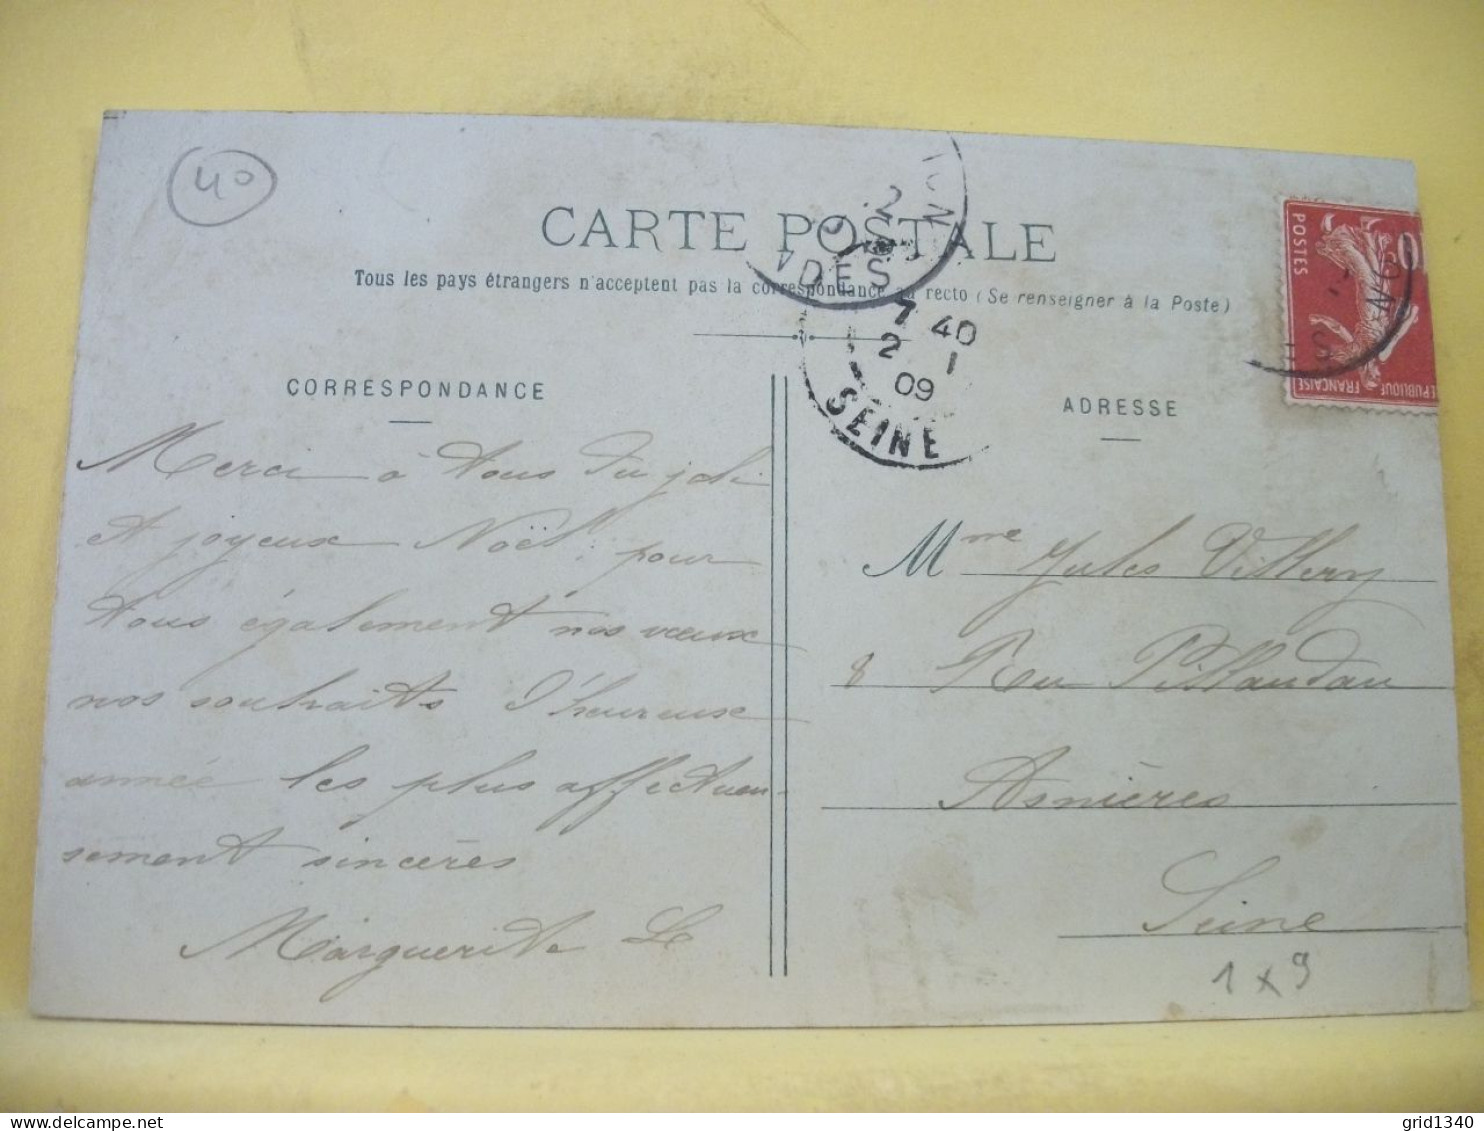 40
CARTE POSTALE
Tous les pays étrangers n'acceptent pas la correspondance au recto (Se renseigner à la Poste)
DES
7 40
2 1
09
SEINE
POSTES
10
REPUBLIQUE
FRANÇAISE
CORRESPONDANCE
ADRESSE
Merci à tous du joli
et joyeux Noël pour
tous également nos vœux
nos souhaits d'heureuse
année les plus affectueu-
sement sincères
Marguerite L
Mme Jules
8 Rue
Asnières
Seine
1 x 9
grid1340